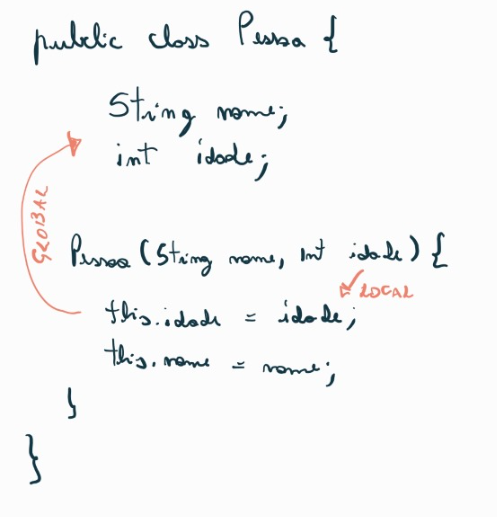 public class Pessoa {
String nome;
int idade;
GLOBAL
Pessoa (String nome, int idade) {
LOCAL
this.idade = idade;
this.nome = nome;
}
}